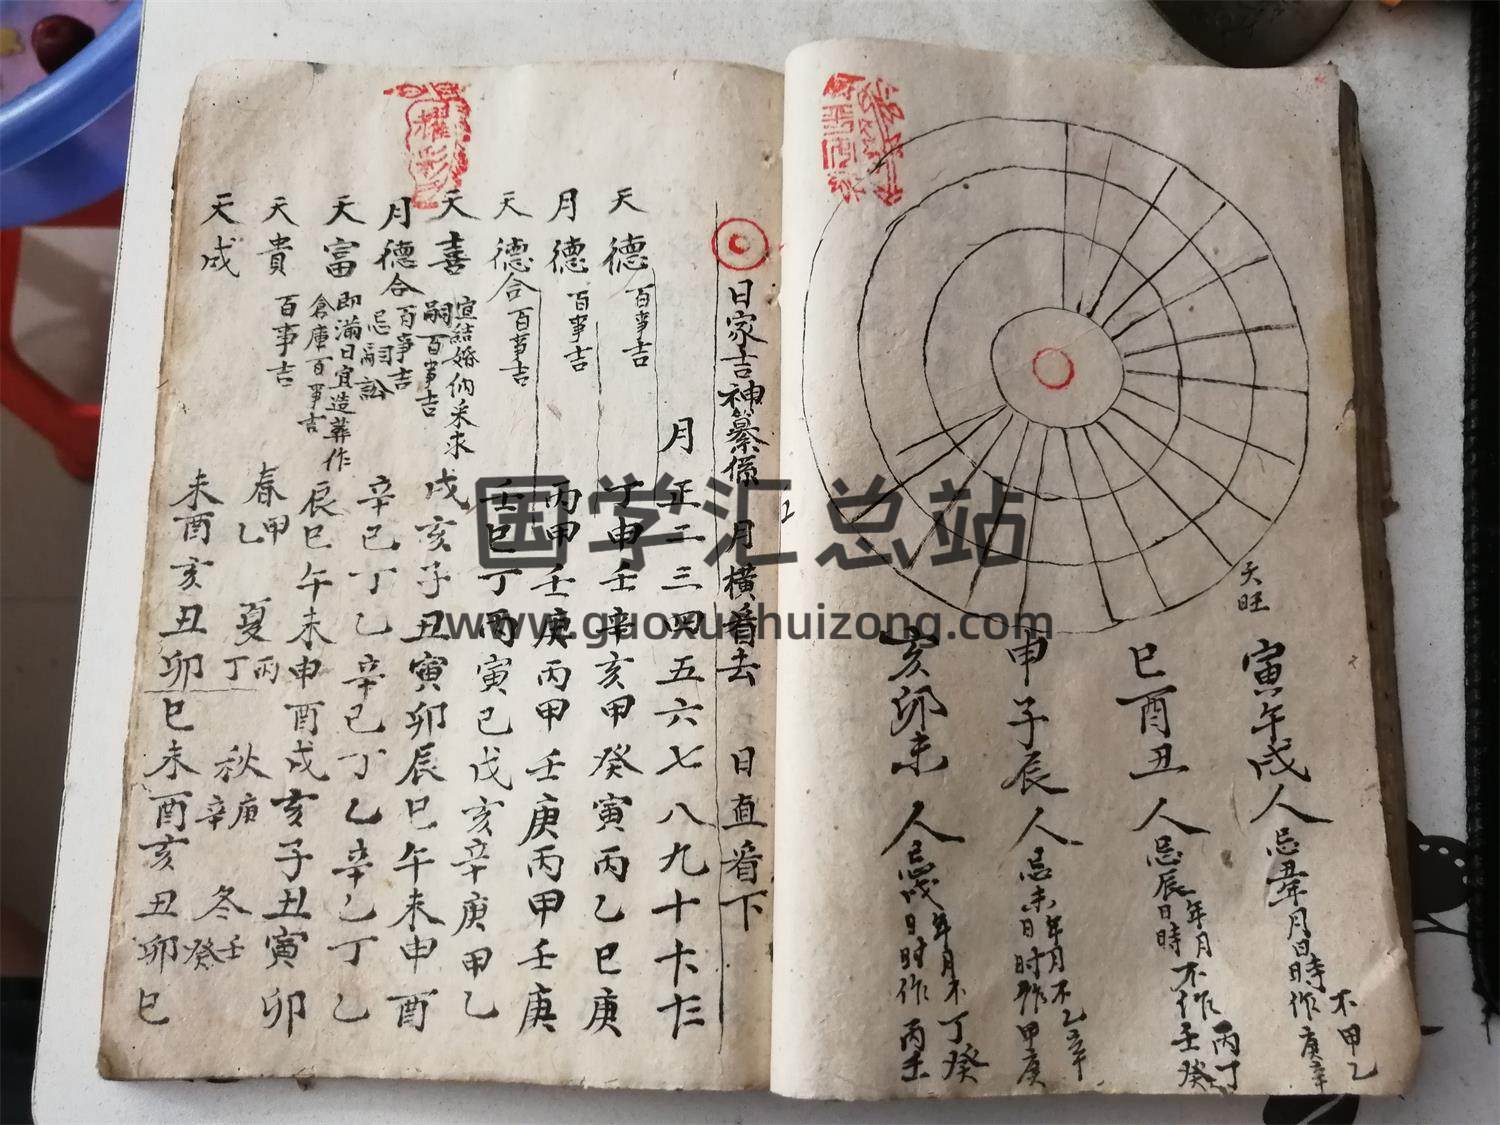 天旺
寅午戌人忌丑年月日時不作甲乙庚辛
巳酉丑人忌辰年月日時不作丙丁壬癸
申子辰人忌未年月日时不作乙辛甲庚
亥卯未人忌戌年月日时不作丁癸丙壬
日家吉神纂係 月橫看去 日直看下
月正二三四五六七八九十十一十二
天德 百事吉 丁申壬辛亥甲癸寅丙乙巳庚
月德 百事吉 丙甲壬庚丙甲壬庚丙甲壬庚
天德合 百事吉 壬巳丁丙寅己戊亥辛庚甲乙
天喜 宜結婚納采求嗣百事吉 戌亥子丑寅卯辰巳午未申酉
月德合 百事吉忌詞訟 辛己丁乙辛己丁乙辛己丁乙
天富 即滿日宜造葬作倉庫百事吉 辰巳午未申酉戌亥子丑寅卯
天貴 百事吉 春甲乙 夏丙丁 秋庚辛 冬壬癸
天成 未酉亥丑卯巳未酉亥丑卯巳
耀彩
国学汇总站
www.guoxuehuizong.com